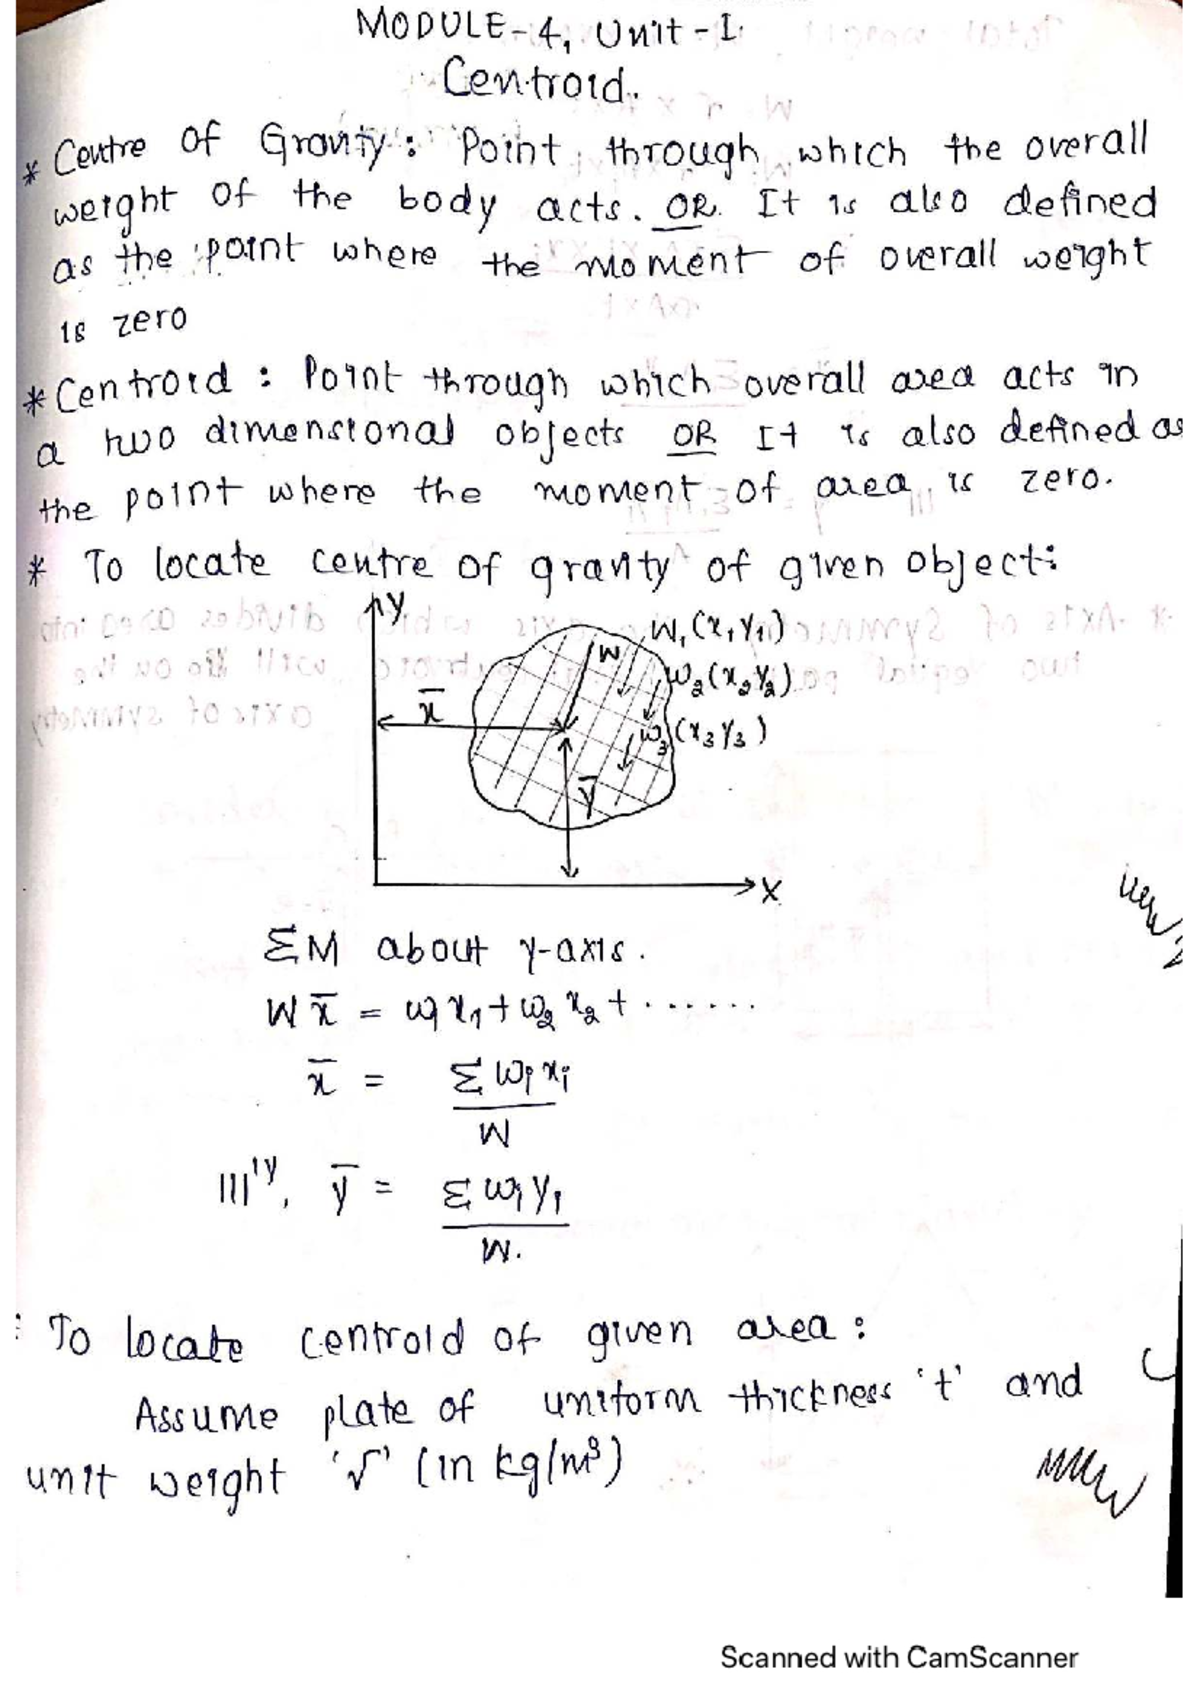 MODULE-4, Unit-I.
Centroid.
* Centre of Gravity: Point through which the overall
weight of the body acts. OR It is also defined
as the point where the moment of overall weight
is zero
* Centroid : Point through which overall area acts in
a two dimensional objects OR It is also defined as
the point where the moment of area is zero.
* To locate centre of gravity of given object:
Y
W W₁(x₁ y₁)
W₂(x₂ y₂)
x̄ W₃(x₃ y₃)
ȳ
X
ΣM about y-axis.
W x̄ = w₁x₁ + w₂x₂ + ......
x̄ = Σ wᵢ xᵢ
W
lllˡʸ, ȳ = Σ wᵢ yᵢ
W.
To locate centroid of given area :
Assume plate of uniform thickness 't' and
unit weight 'γ' (in kg/m³)
Scanned with CamScanner